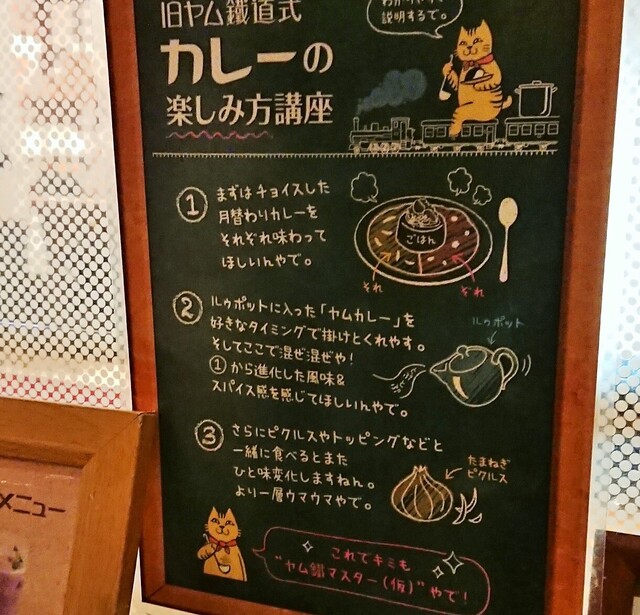 旧ヤム鐵道式
カレーの
楽しみ方講座
説明するで。
① まずはチョイスした
月替わりカレーを
それぞれ味わって
ほしいんやで。
ごはん
それ
ぞれ
② ルゥポットに入った「ヤムカレー」を
好きなタイミングで掛けとくれやす。
そしてここで混ぜ混ぜや!
①から進化した風味&
スパイス感を感じてほしいんやで。
ルゥポット
③ さらにピクルスやトッピングなどと
一緒に食べるとまた
ひと味変化しますねん。
より一層ウマウマやで。
たまねぎ
ピクルス
これでキミも
"ヤム鐵マスター(仮)"やで!
メニュー